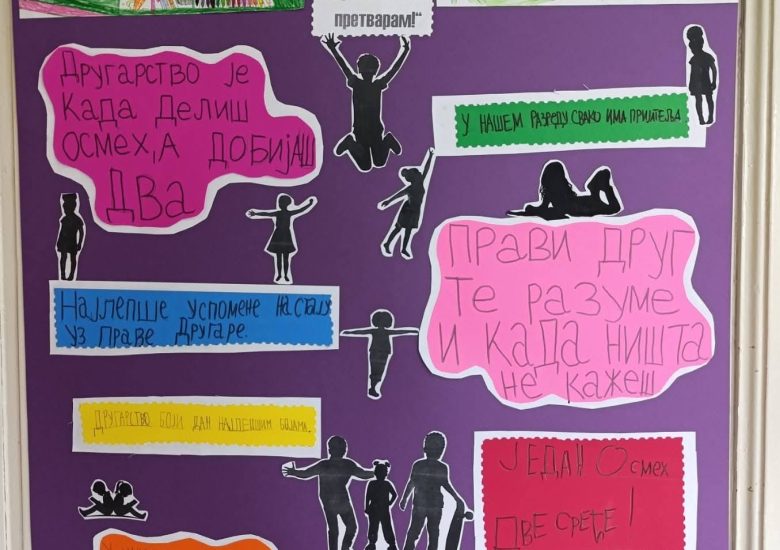 претварам!“
Другарство је
када делиш
осмех, а добијаш
два
У нашем разреду свако има пријатеља
Прави друг
те разуме
и када ништа
не кажеш
Најлепше успомене настају
уз праве другаре.
Другарство боји дан најлепшим бојама.
Један осмех
две среће!